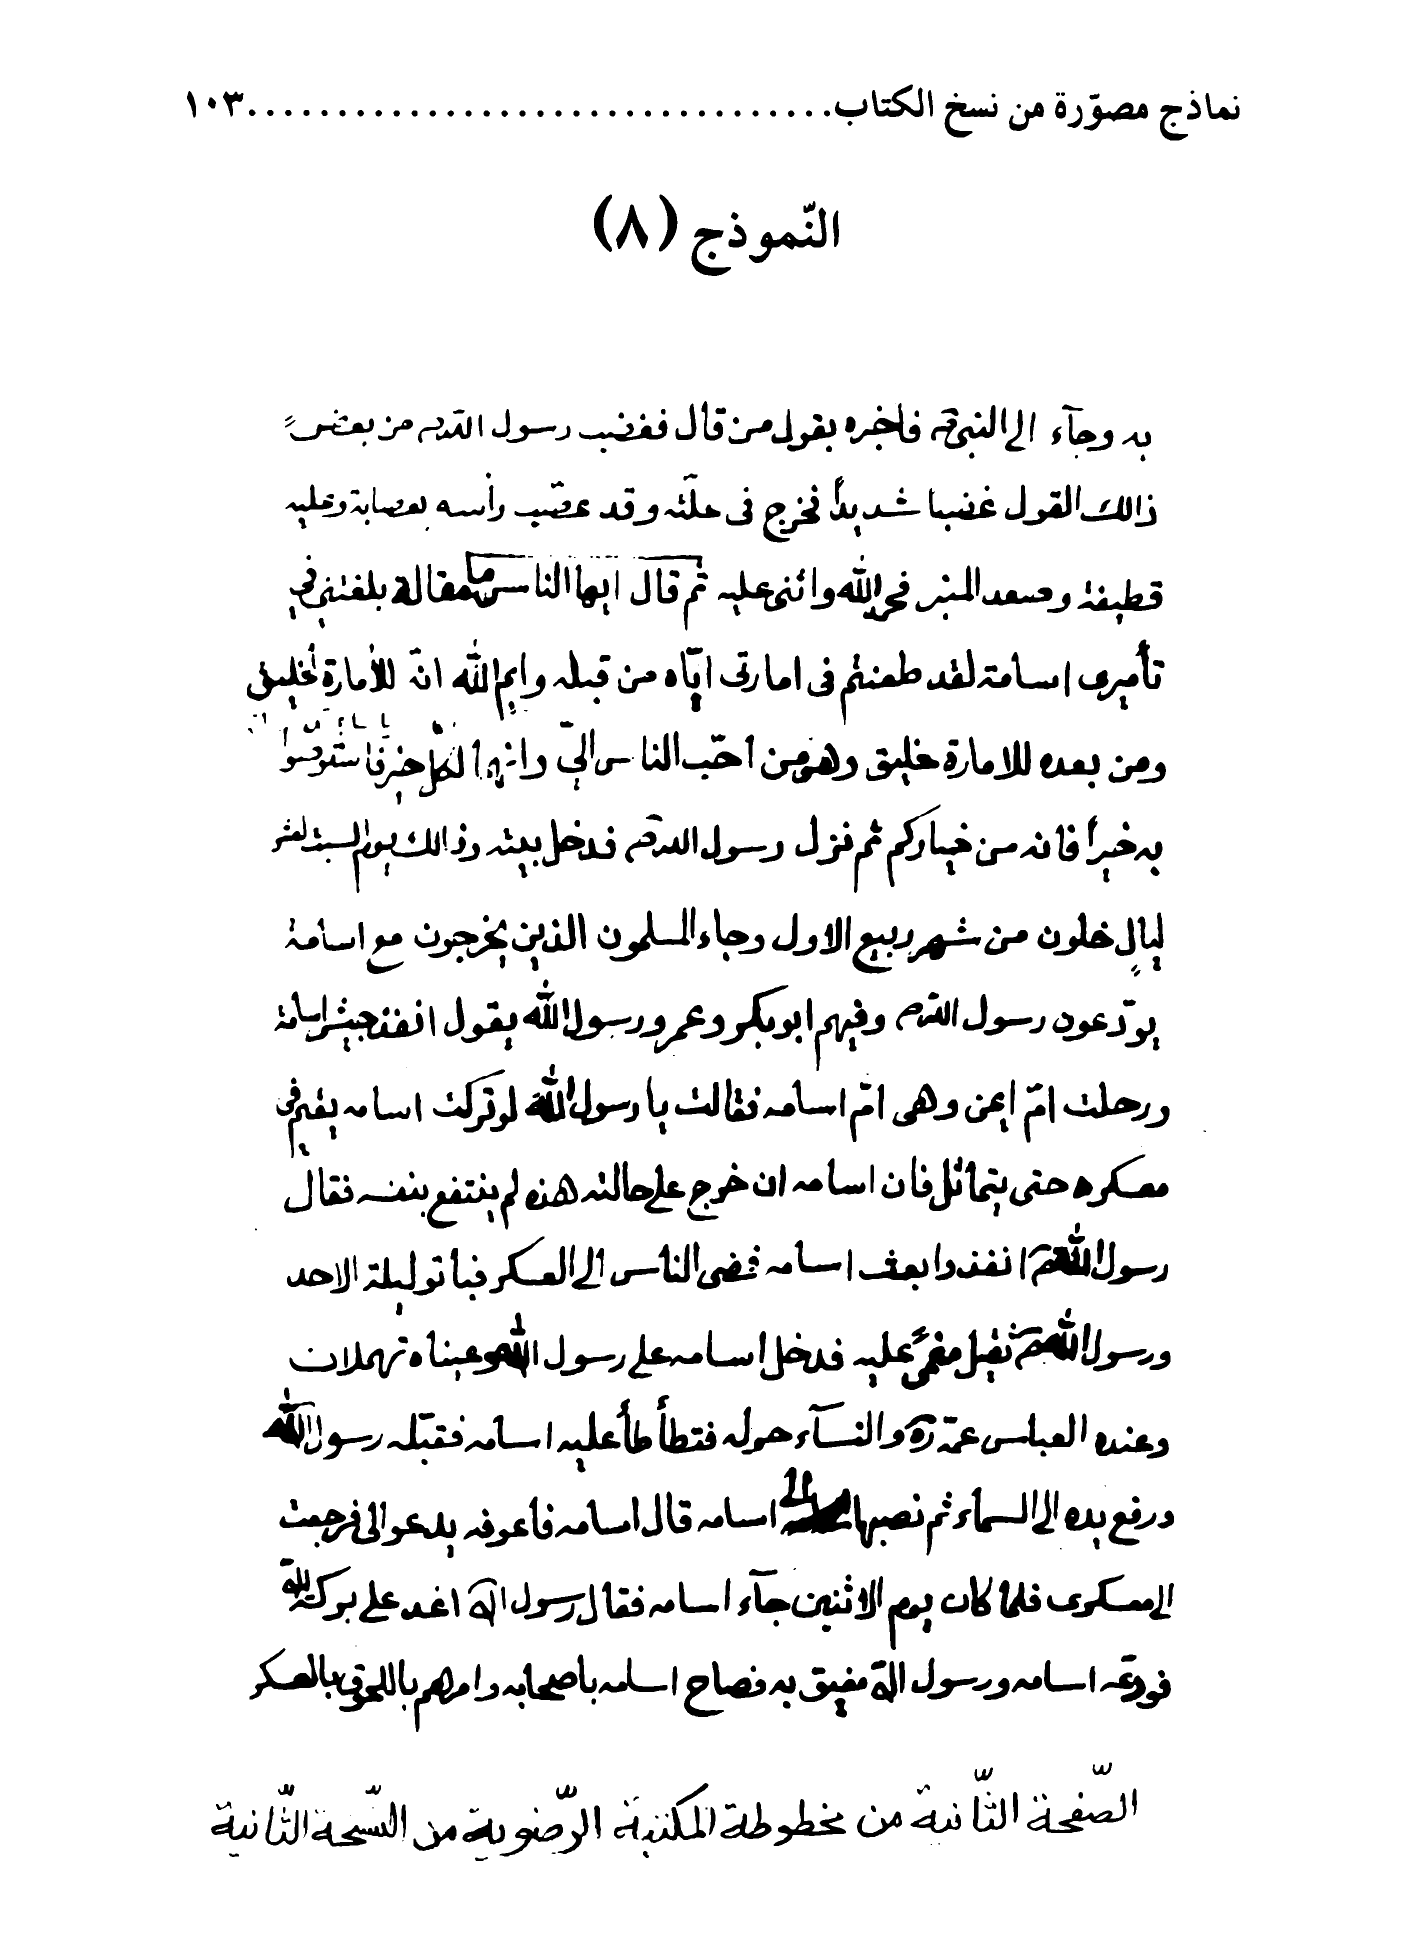 نماذج مصوّرة من نسخ الكتاب.................................١٠٣
النّموذج (٨)
به وجآء الى النبى ص فاخبره بقول من قال فغضب رسول الله ص من بعض
ذالك القول غضبا شديداً فخرج فى علّته وقد عصّب رأسه بعصابة وعليه
قطيفة وصعد المنبر فحمد الله واثنى عليه ثم قال ايها الناس ما مقالة بلغتنى فى
تأميرى اسامة لقد طعنتم فى امارتى ايّاه من قبله وايم الله انّه للأمارة لخليق
ومن بعده للامارة خليق وهو من احّب الناس الىّ وانهما لكلّ خير فاستوصوا
به خيراً فانه من خياركم ثم نزل رسول الله ص فدخل بيته وذالك يوم السبت لعشر
ليالٍ خلون من شهر ربيع الاول وجاء المسلمون الذين يخرجون مع اسامة
يودّعون رسول الله ص وفيهم ابوبكر وعمر ورسول الله يقول انفذ جيش اسامة
ورحلت امّ ايمن وهى امّ اسامه فقالت يا رسول الله لو تركت اسامه يقيم فى
معسكره حتى يتماثل فان اسامه ان خرج على حالته هذه لم ينتفع بنفسه فقال
رسول الله ص انفذوا بعث اسامه فمضى الناس الى العسكر فباتو ليلة الاحد
ورسول الله ص ثقيل مغمىً عليه فدخل اسامه على رسول الله وعيناه تهملان
وعنده العباس عمّه والنسآء حوله فتطأطأ عليه اسامه فقبّله رسول الله
ورفع يده الى السمآء ثم نصبها الى اسامه قال اسامه فأعرفه يدعو الى فرجعت
الى معسكرى فلما كان يوم الاثنين جآء اسامه فقال رسول الله اغد على بركة الله
فودعّه اسامه ورسول الله مفيق به فصاح اسامه باصحابه وامرهم باللحوق بالعسكر
الصّفحة الثّانية من مخطوطة المكتبة الرّضوية من النّسخة الثّانية